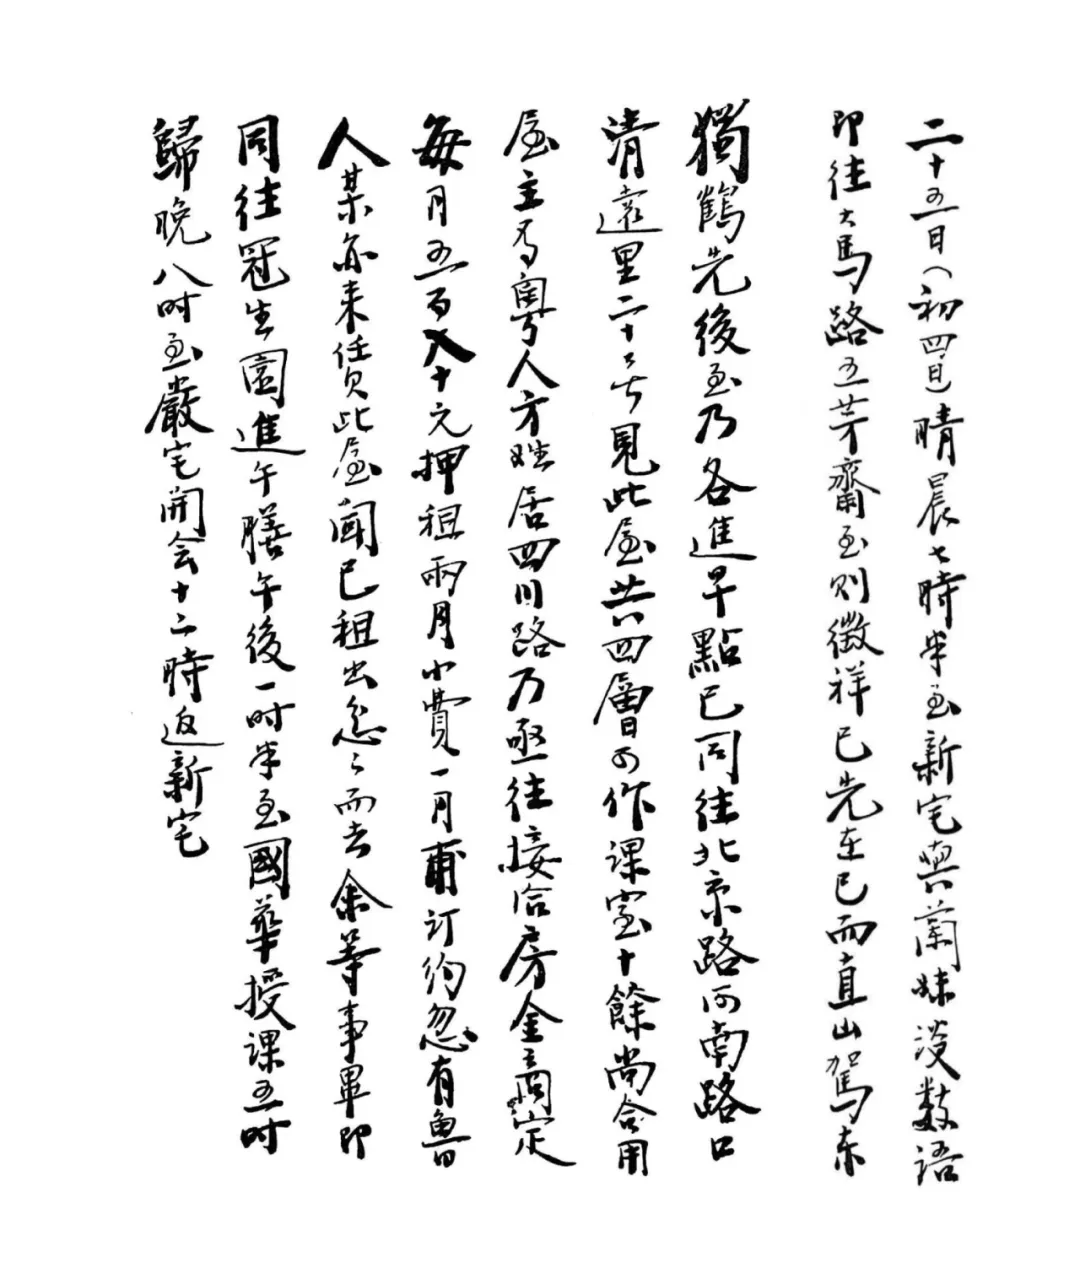 二十五日（初四日）晴晨七時半至新宅與蘭妹談数語
即往大馬路五芳齋至则徵祥已先在已而直山駕东
獨鶴先後至乃各進早點已同往北京路河南路口
清遠里二十二号見此屋共四層可作课室十餘尚合用
屋主为粵人方姓居四川路乃亟往接洽房金商定
每月五百八十元押租兩月小費一月甫订约忽有魯
人某亦来赁此屋闻已租出忿々而去余等事畢即
同往冠生園進午膳午後一时半至國華授课五时
歸晚八时至嚴宅開会十二時返新宅